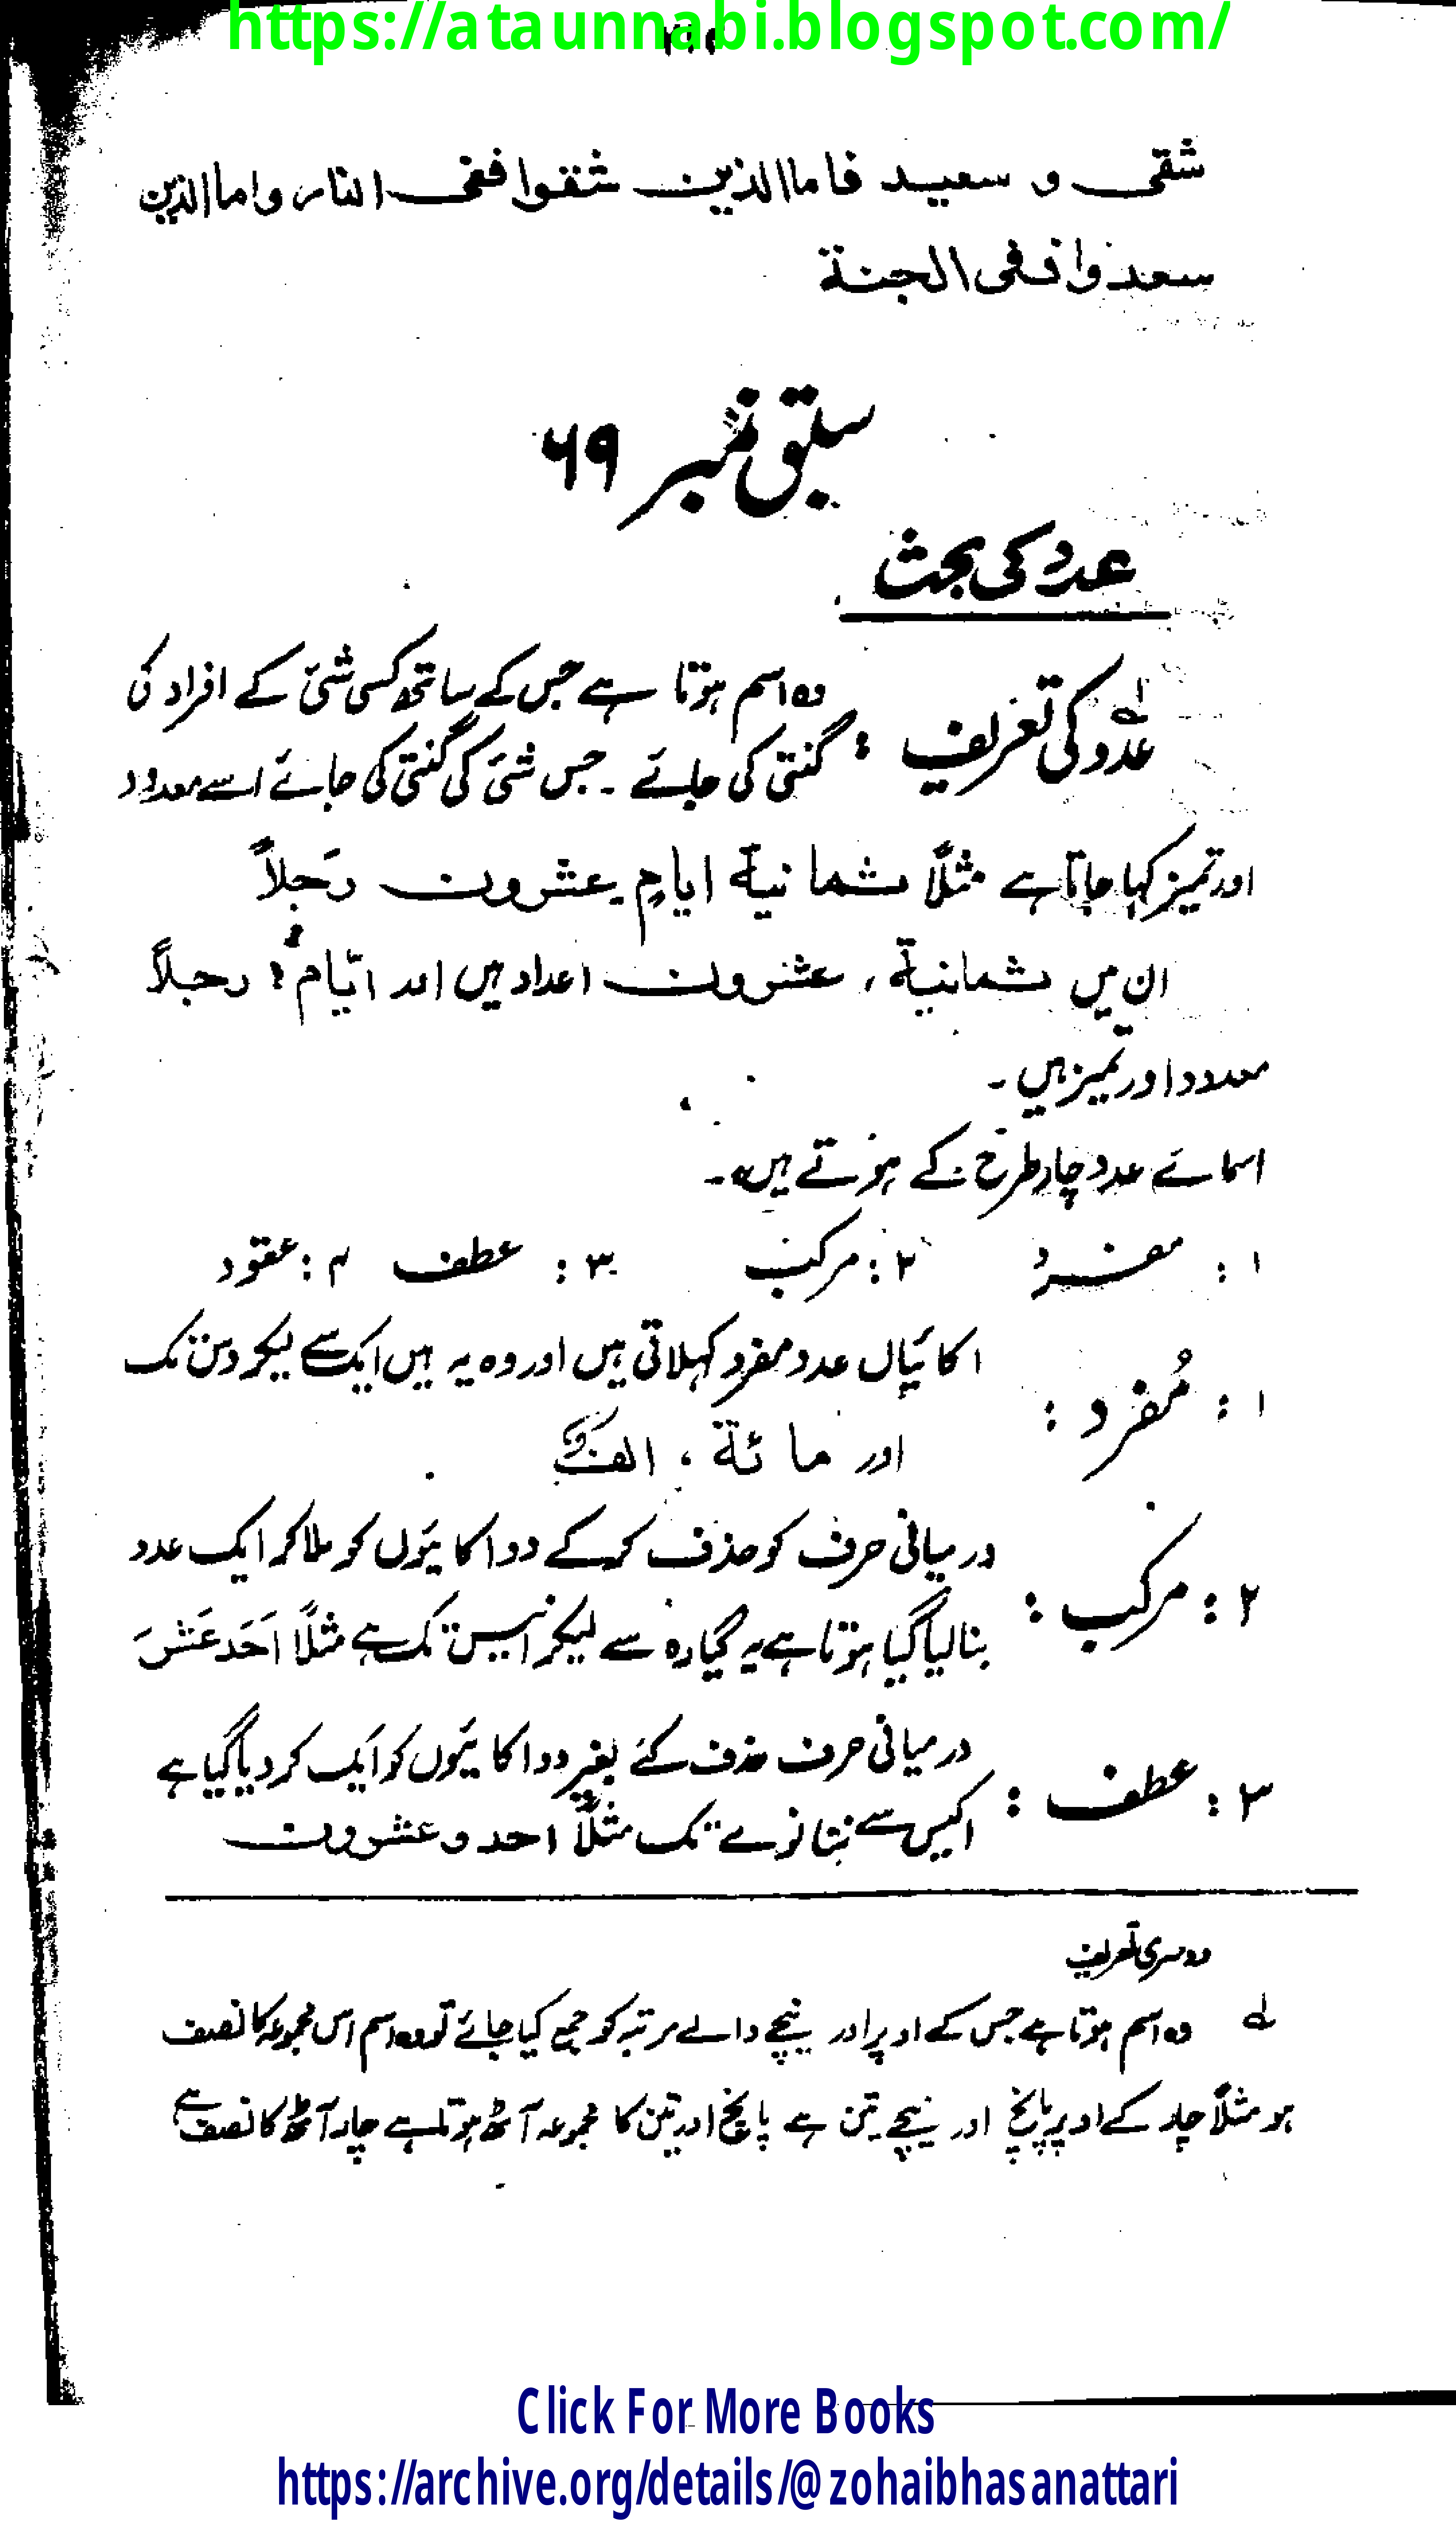 https://ataunnabi.blogspot.com/
شقی و سعید فاما الذین شقوا ففی النار واما الذین
سعدوا ففی الجنة
سبق نمبر ٦٩
عدد کی بحث
عدد کی تعریف : وہ اسم ہوتا ہے جس کے ساتھ کسی شئ کے افراد کی
گنتی کی جائے ۔ جس شئ کی گنتی کی جائے اسے معدود
اور تمیز کہا جاتا ہے مثلاً ثمانیة ایامٍ ۔ عشرون رَجلاً
ان میں ثمانیة ، عشرون اعداد ہیں اور ایّام ، رجلاً
معدود اور تمیز ہیں ۔
اسمائے عدد چار طرح کے ہوتے ہیں ۔
۱ : مفرد ۲ : مرکب ۳ : عطف ۴ : عقود
۱ : مُفرد : اکائیاں عدد مفرد کہلاتی ہیں اور وہ یہ ہیں ایک سے لیکر دس تک
اور مائة ، الف
۲ : مرکب : درمیانی حرف کو حذف کرکے دو اکائیوں کو ملا کر ایک عدد
بنا لیا گیا ہوتا ہے یہ گیارہ سے لیکر انیس تک ہے مثلاً اَحَد عَشَرَ
۳ : عطف : درمیانی حرف حذف کئے بغیر دو اکائیوں کو ایک کر دیا گیا ہے
اکیس سے ننانوے تک مثلاً احد و عشرون
دوسری تعریف
لے وہ اسم ہوتا ہے جس کے اوپر اور نیچے والے مرتبہ کو جمع کیا جائے تو وہ اسم اس مجموعہ کا نصف
ہو مثلاً چار کے اوپر پانچ اور نیچے تین ہے پانچ اور تین کا مجموعہ آٹھ ہوتا ہے چار آٹھ کا نصف ہے
Click For More Books
https://archive.org/details/@zohaibhasanattari